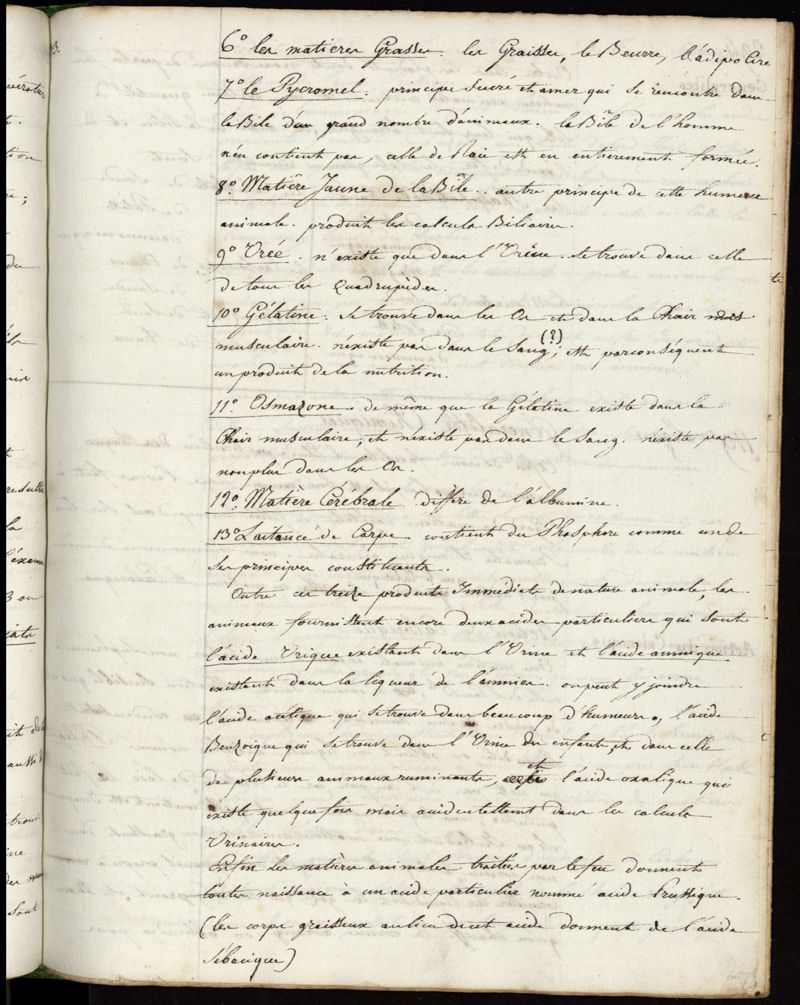 6° les matieres Grasses. les Graisses, le Beurre, l'adipo Cire
7° le Pycromel. principe Sucré et amer qui se rencontre dans
la Bile d'un grand nombre d'animaux. la Bîle de l'homme
n'en contient pas, celle de Raie est en entierement formée.
8°. Matière Jaune de la Bîle.. autre principe de cette humeur
animale. produit les calculs Biliaires.
9° Urée. n'existe que dans l'Urine. se trouve dans celle
de tous les Quadrupèdes.
10° Gélatine. se trouve dans les Os et dans la Chair mus
musculaire. n'existe pas dans le Sang (?); est par conséquent
un produit de la nutrition.
11°. Osmazone. de même que la Gélatine existe dans la
Chair musculaire, et n'existe pas dans le Sang. n'existe pas
non plus dans les Os.
12°. Matière Cérébrale differe de l'albumine.
13° Laitance de Carpe contient du Phosphore comme un de
ses principes constituants.
Outre ces treize produits Immédiats de nature animale les
animaux fournissent encore deux acides particuliers qui sont
l'acide Urique existant dans l'Urine et l'acide amnique
existant dans la liqueur de l'amnios. on peut y joindre
l'acide acétique qui se trouve dans beaucoup d'humeurs, l'acide
Benzoique qui se trouve dans l'Urine des enfants, et dans celle
de plusieurs animaux ruminants, et l'acide oxalique qui
existe quelque fois mais accidentellement dans les calculs
Urinaires.
Enfin les matières animales traitées par le feu donnent
toutes naissance à un acide particulier nommé acide Prussique
(les corps graisseux au lieu de cet acide donnent de l'acide
Sébacique)